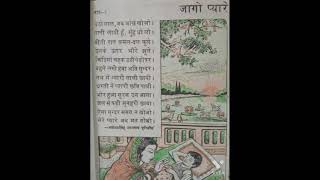 पाठ-१
जागो प्यारे
उठो लाल, अब आँखें खोलो।
पानी लायी हूँ, मुँह धो लो।
बीती रात कमल-दल फूले।
उनके ऊपर भौंरे झूले।
चिड़ियाँ चहक उठीं पेड़ों पर।
बहने लगी हवा अति सुन्दर।
नभ में न्यारी लाली छायी।
धरती ने प्यारी छवि पायी।
भोर हुआ सूरज उग आया।
जल में पड़ी सुनहरी छाया।
ऐसा सुन्दर समय न खोओ।
मेरे प्यारे अब मत सोओ।